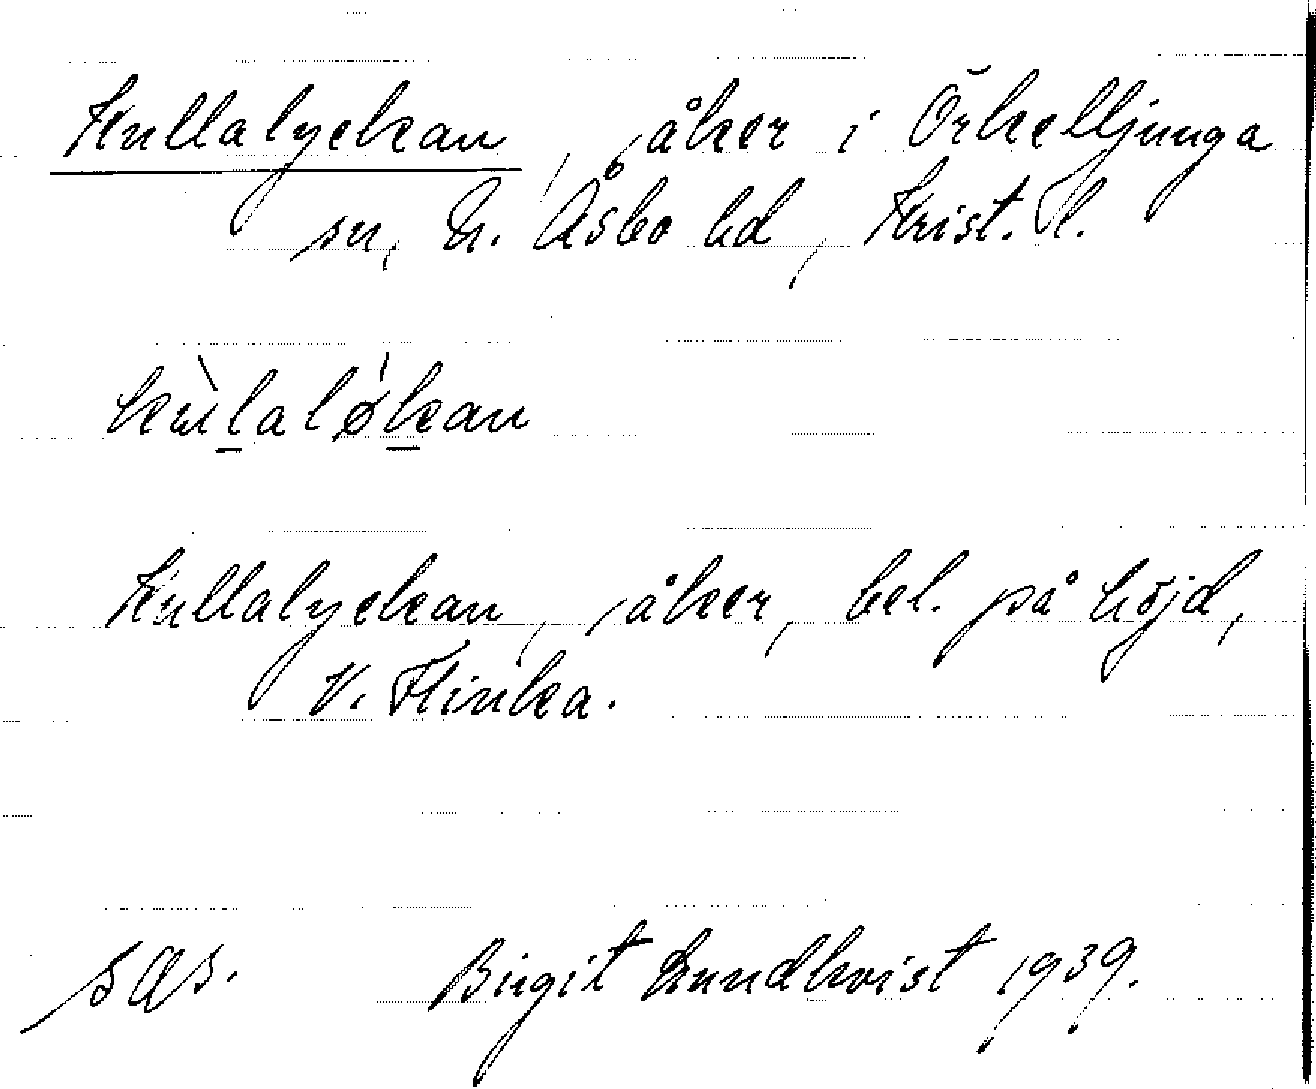 Kullalyckan, åker i Örkelljunga
sn, N. Åsbo hd, Krist. l.
kùlalø̀kan
Kullalyckan, åker, bel. på höjd,
V. Flinka.
sæs. Birgit Lundkvist 1939.